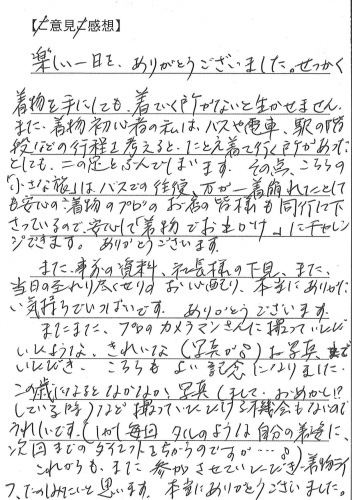 【ご意見ご感想】
楽しい一日を、ありがとうございました。せっかく
着物を手にしても、着ていく所がないと生かせません。
また、着物初心者の私は、バスや電車、駅の階
段などの行程を考えると、たとえ着て行く所があった
としても、二の足をふんでしまいます。その点、こちらの
「小さな旅」はバスでの往復、万が一着崩れたとして
も安心の着物のプロのお店の皆様も同行して下
さっているので、安心して「着物でお出かけ」にチャレン
ジできます。ありがとうございます。
また、事前の資料、社長様の下見、また、
当日の至れり尽くせりのお心配り、本当にありがた
い気持ちでいっぱいです。ありがとうございます。
またまた、プロのカメラマンさんに撮っていただ
いたような、きれいな(写真が♂)お写真まで
いただき、こちらもよい記念になりました。
この歳になるとなかなか、写真(まして、おめかし!?
している時)など撮っていただける機会もないので
うれしいです。(しかし毎回タルのような自分の着姿に、
次回までのダイエットをちかうのですが…♂)
これからも、また参加させていただき、着物ライ
フ、たのしみたいと思います。本当にありがとうございました。